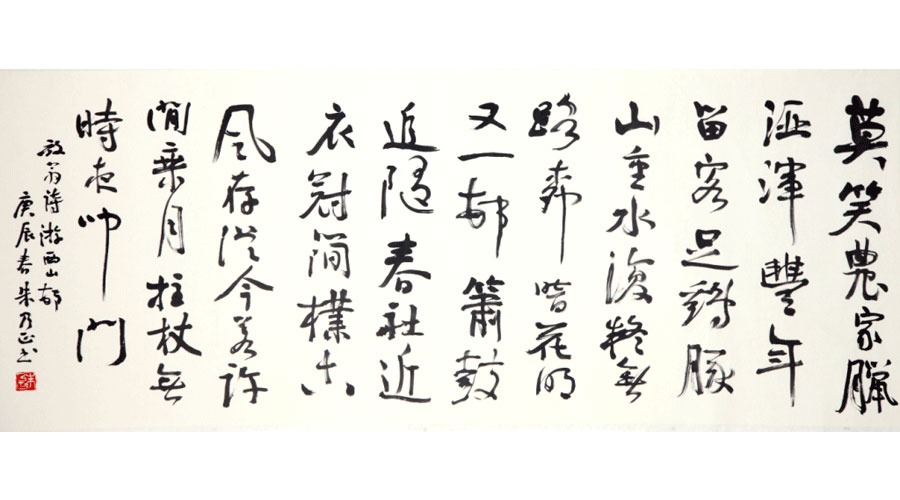 莫笑農家臘
酒渾豐年
留客足鷄豚
山重水復疑無
路柳暗花明
又一邨簫鼓
追隨春社近
衣冠簡樸古
風存從今若許
閒乘月拄杖無
時夜叩門
放翁詩游西山邨
庚辰春朱乃正书